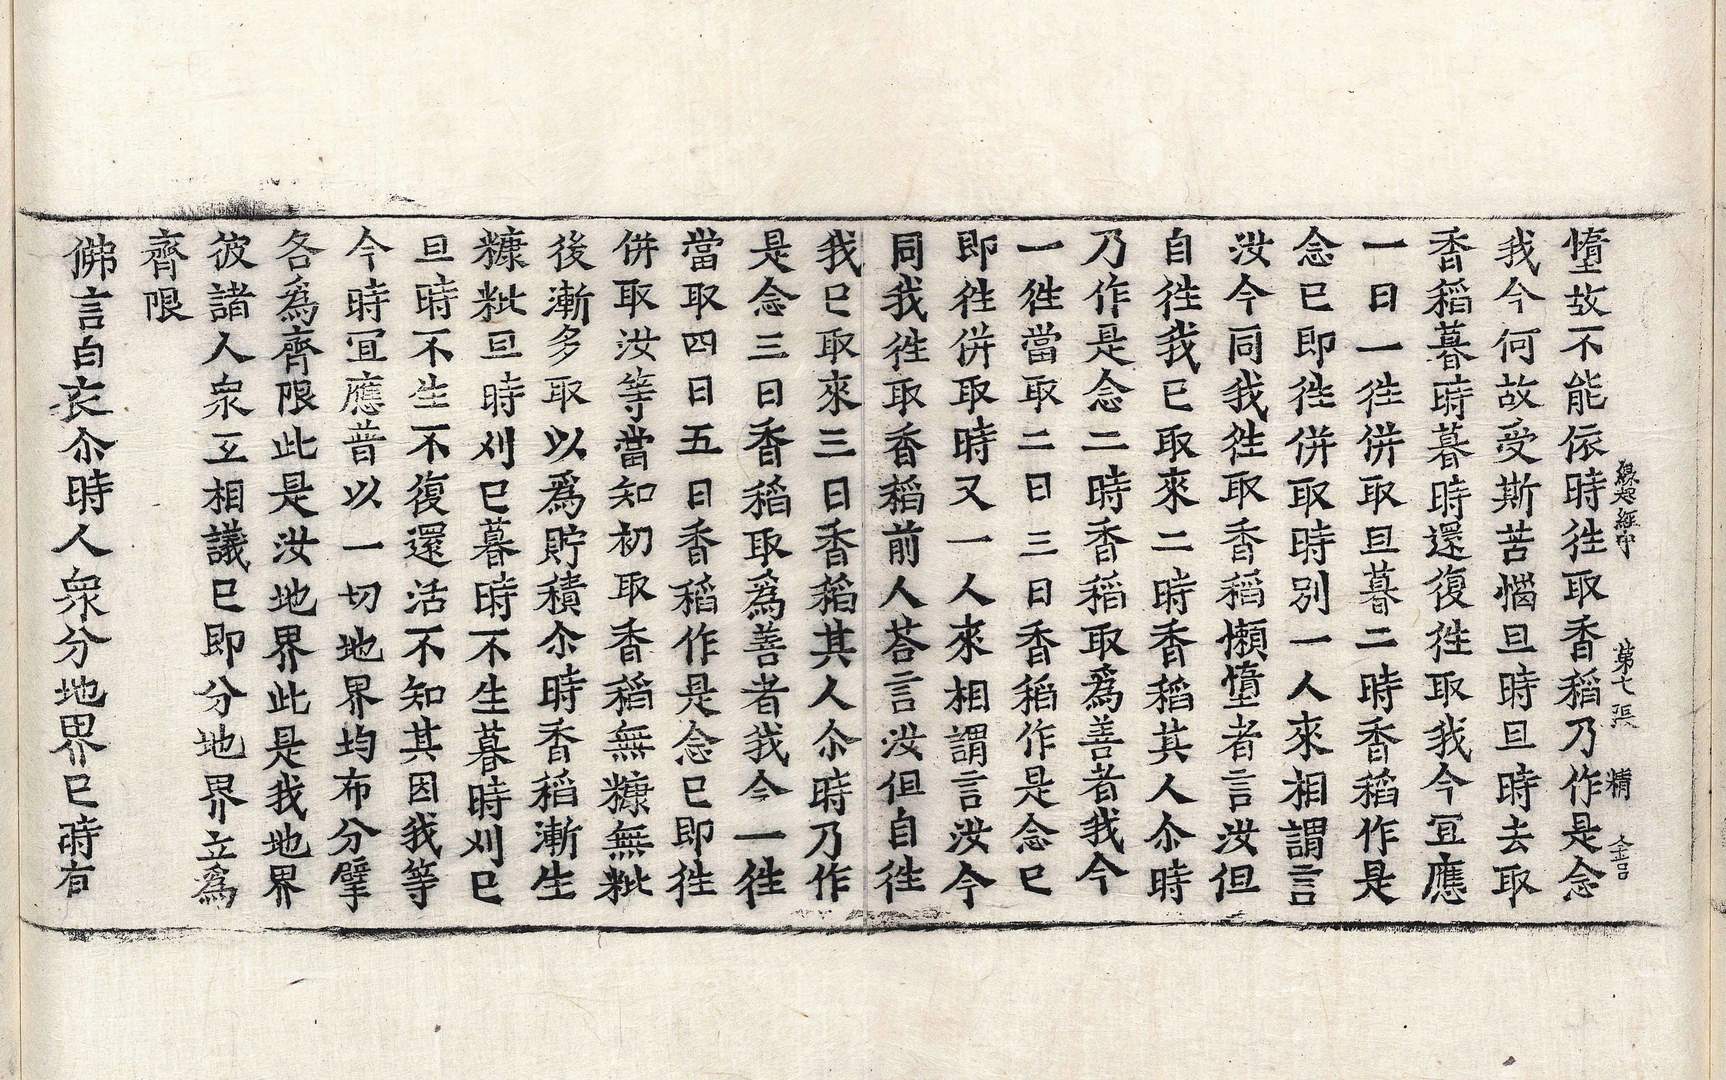 縁起經中 第七張 精
憜故不能依時徃取香稻乃作是念
我今何故受斯苦惱旦時旦時去取
香稻暮時暮時還復徃取我今冝應
一日一徃併取旦暮二時香稻作是
念已即徃併取時別一人來相謂言
汝今同我徃取香稻懶憜者言汝但
自徃我已取來二時香稻其人尒時
乃作是念二時香稻取爲善者我今
一徃當取二日三日香稻作是念已
即徃併取時又一人來相謂言汝今
同我徃取香稻前人荅言汝但自徃
我已取來三日香稻其人尒時乃作
是念三日香稻取爲善者我今一徃
當取四日五日香稻作是念已即徃
併取汝等當知初取香稻無糠無粃
後漸多取以爲貯積尒時香稻漸生
糠粃旦時刈已暮時不生暮時刈已
旦時不生不復還活不知其因我等
今時冝應普以一切地界均布分擘
各爲齊限此是汝地界此是我地界
彼諸人衆互相議已即分地界立爲
齊限
佛言白衣尒時人衆分地界已時有